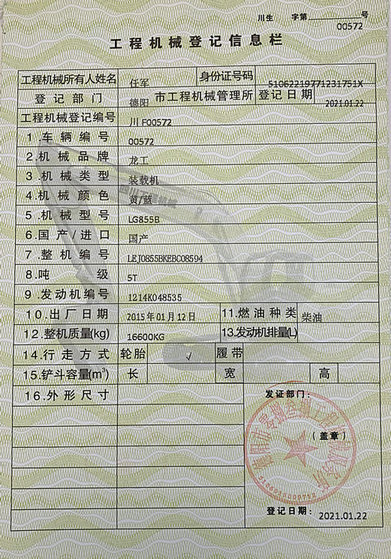 川生 字第 号
00572
工程机械登记信息栏
工程机械所有人姓名 任军 身份证号码 51062219771231751X
登记部门 德阳 市工程机械管理所 登记日期 2021.01.22
工程机械登记编号 川F00572
1.车辆编号 00572
2.机械品牌 龙工
3.机械类型 装载机
4.机械颜色 黄/蓝
5.机械型号 LG855B
6.国产/进口 国产
7.整机编号 LEJ0855BKEBC08594
8.吨级 5T
9.发动机编号 1214K048535
10.出厂日期 2015年01月12日 11.燃油种类 柴油
12.整机质量(kg) 16600KG 13.发动机排量(L)
14.行走方式 轮胎 √ 履带
15.铲斗容量(m³) 长 宽 高
16.外形尺寸
发证部门:
(盖章)
登记日期: 2021.01.22